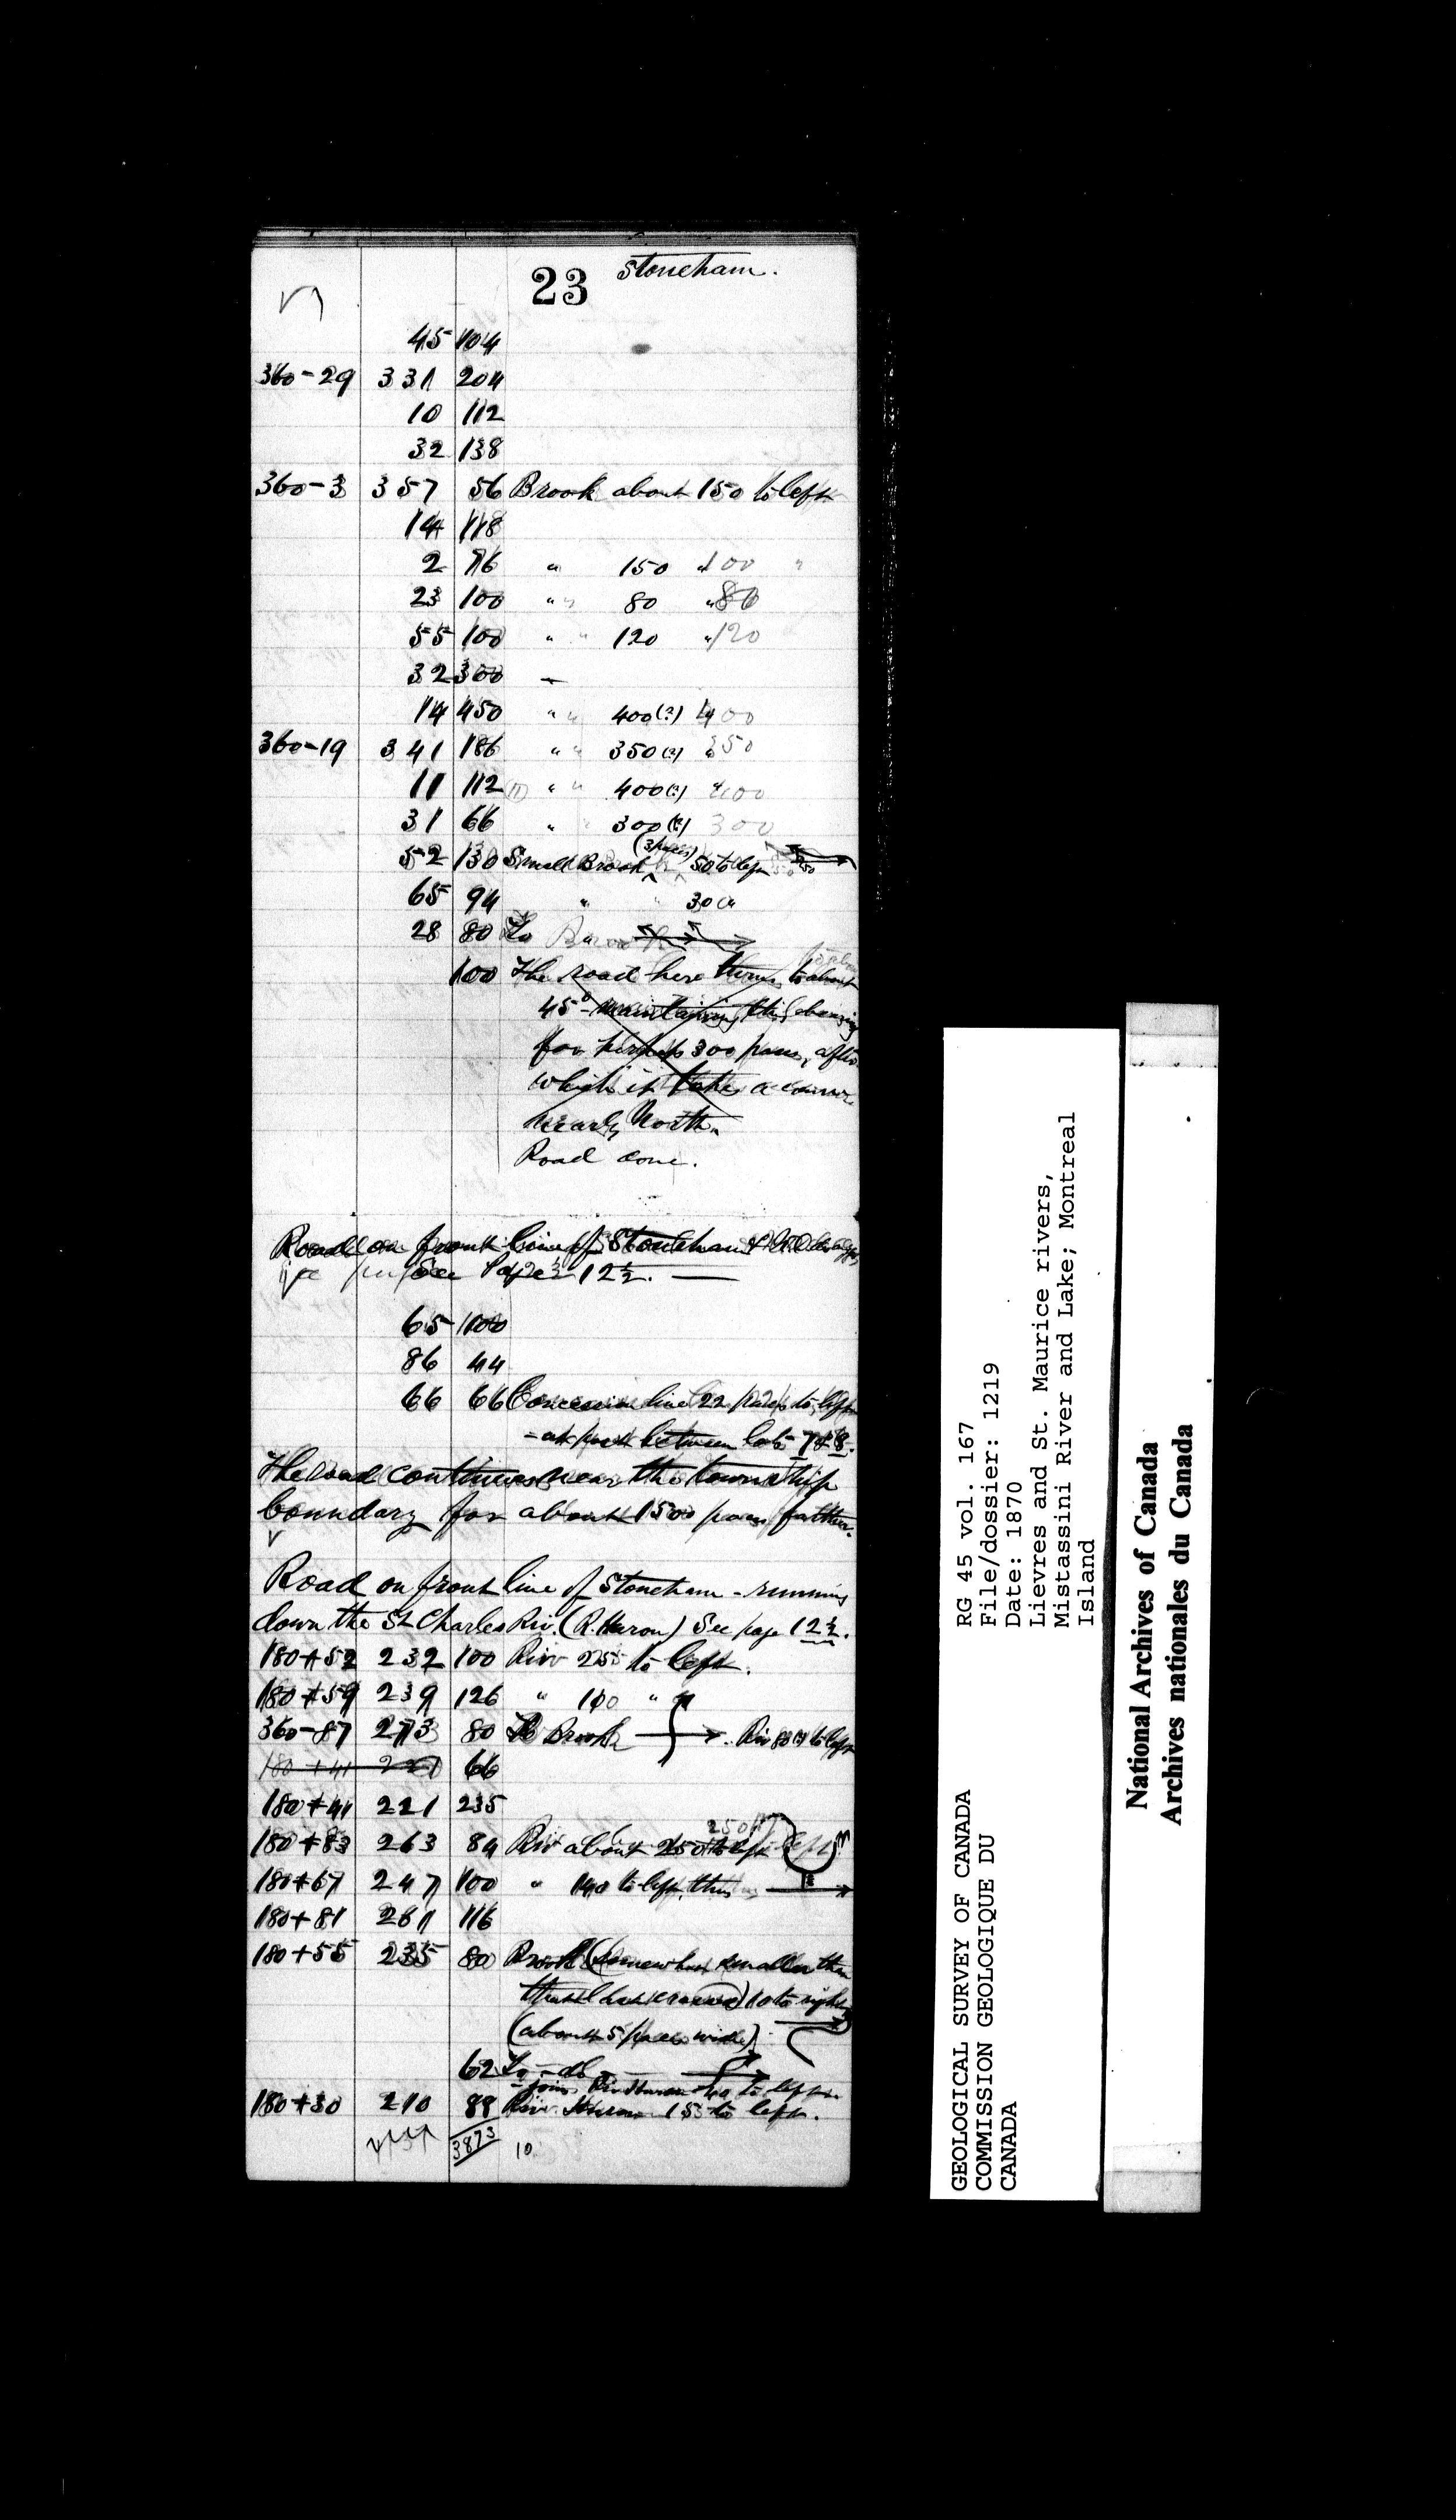 23 Stoneham.
45 104
360-29 331 204
10 112
32 138
360-3 357 56 Brook about 150 to left
14 118
2 76 " 150 " 100 "
23 100 " " 80 " 80
55 100 " " 120 " 120
32 300 —
14 450 " " 400(?) 400
360-19 341 186 " " 350(?) 350
11 112 (11) " " 400(?) 400
31 66 " " 300(?) 300
(3 paces)
52 130 Small Brook 50 to left
65 94 " " 30 "
28 80 To Brook
100 The road here turns to about
45° maintaining this bearing
for perhaps 300 paces, after
which it takes a course
nearly North.
Road done.
Road on front line of Stoneham
See Page 12½. —
65 100
86 44
66 66 Concession line 22 paces to left
- at post between lots 7 & 8.
The road continues near the township
boundary for about 1500 paces further.
Road on front line of Stoneham - running
down the St Charles Riv. (R. Huron) See page 12½.
180+52 232 100 Riv 255 to left.
180+59 239 126 " 100 " "
360-87 273 80 To Brook Riv 80(?) to left
180+41 221 66
180+41 221 235
180+83 263 84 Riv about 250 to left
180+67 247 100 " 140 to left, thus
180+81 261 116
180+55 235 80 Brook (somewhat smaller than
that last crossed) 10 to right
(about 5 paces wide)
62 To - do -
- joins Riv Huron to left
180+30 210 88 Riv. Huron 15 to left.
3873 10
GEOLOGICAL SURVEY OF CANADA
COMMISSION GEOLOGIQUE DU
CANADA
RG 45 vol. 167
File/dossier: 1219
Date: 1870
Lievres and St. Maurice rivers,
Mistassini River and Lake; Montreal
Island
National Archives of Canada
Archives nationales du Canada